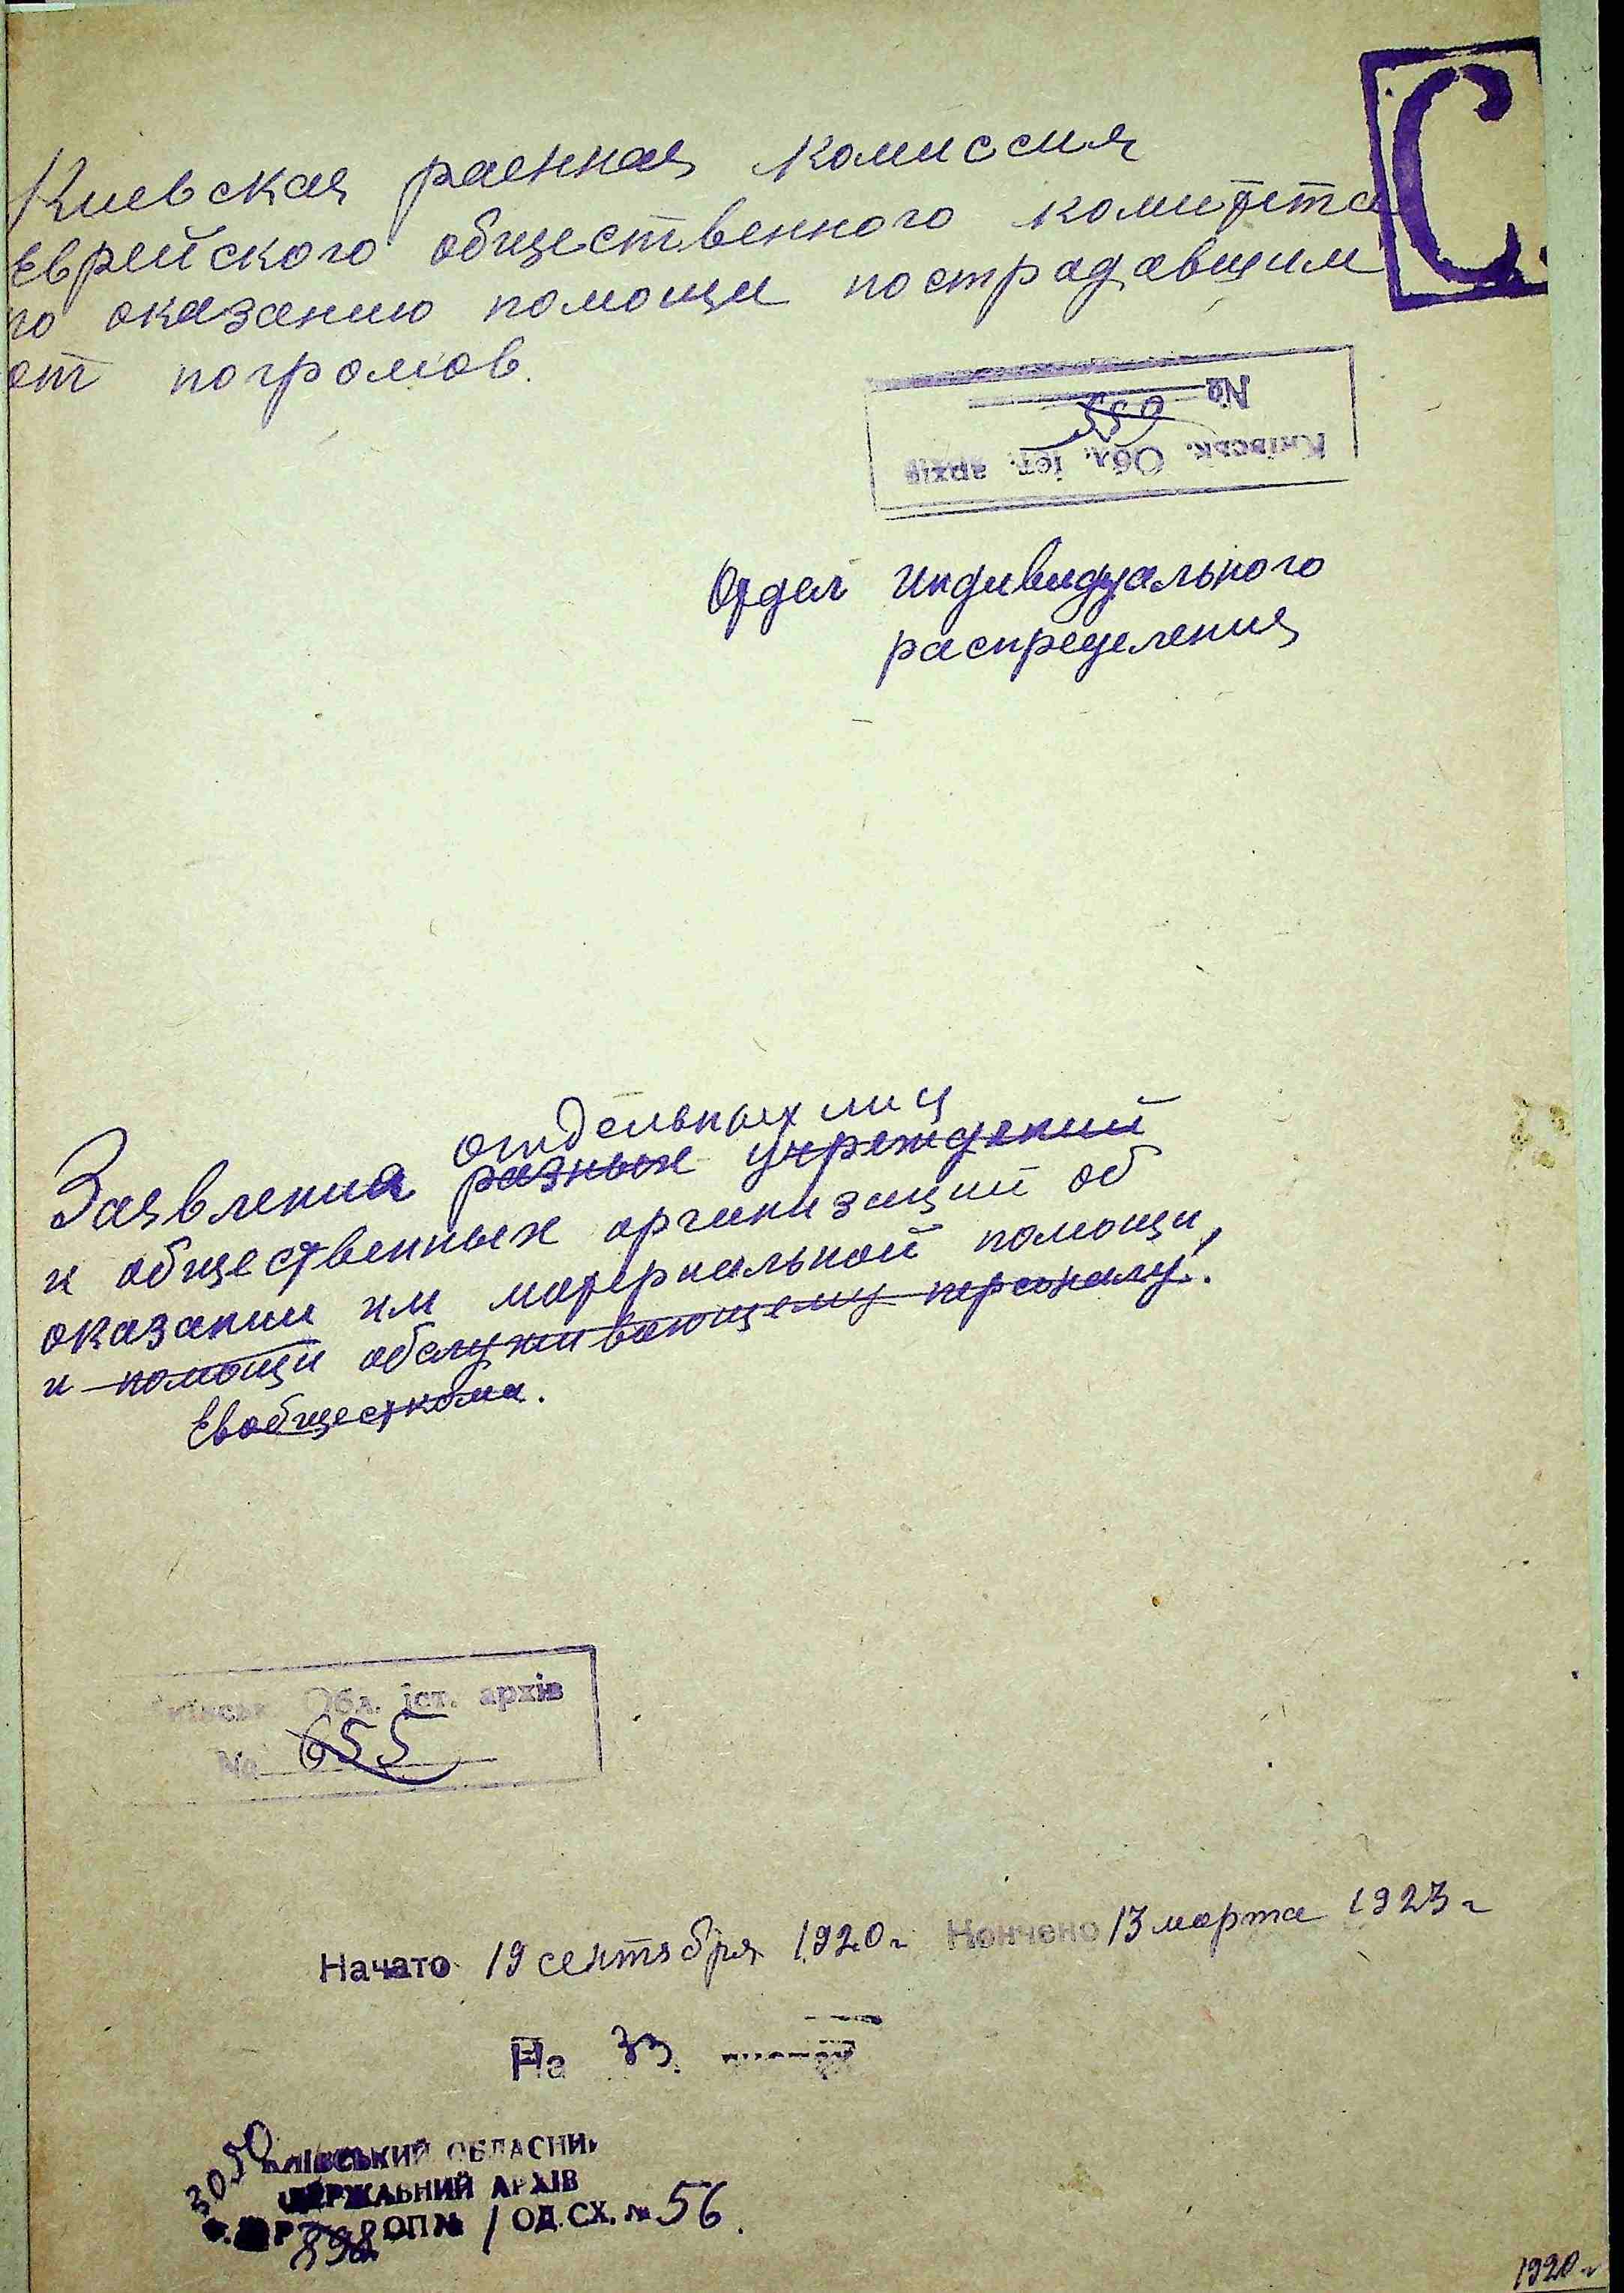 С.
Киевская раенная комиссия
Еврейского общественного комитета
по оказанию помощи пострадавшим
от погромов.
№ 559
Київськ. Обл. іст. архів
Отдел индивидуального
распределения
отдельных лиц
Заявления разных учреждений
и общественных организаций об
оказании им материальной помощи,
и помощи обслуживающему персоналу.
Евобщесткома.
Київськ. Обл. іст. архів
№ 655
Начато 19 сентября 1920 г Кончено 13 марта 1923 г
На 33 листах
3050
КИЇВСЬКИЙ ОБЛАСНИЙ
ДЕРЖАВНИЙ АРХІВ
Ф. Р 898 ОП № 1 ОД. СХ. № 56.
1920 г